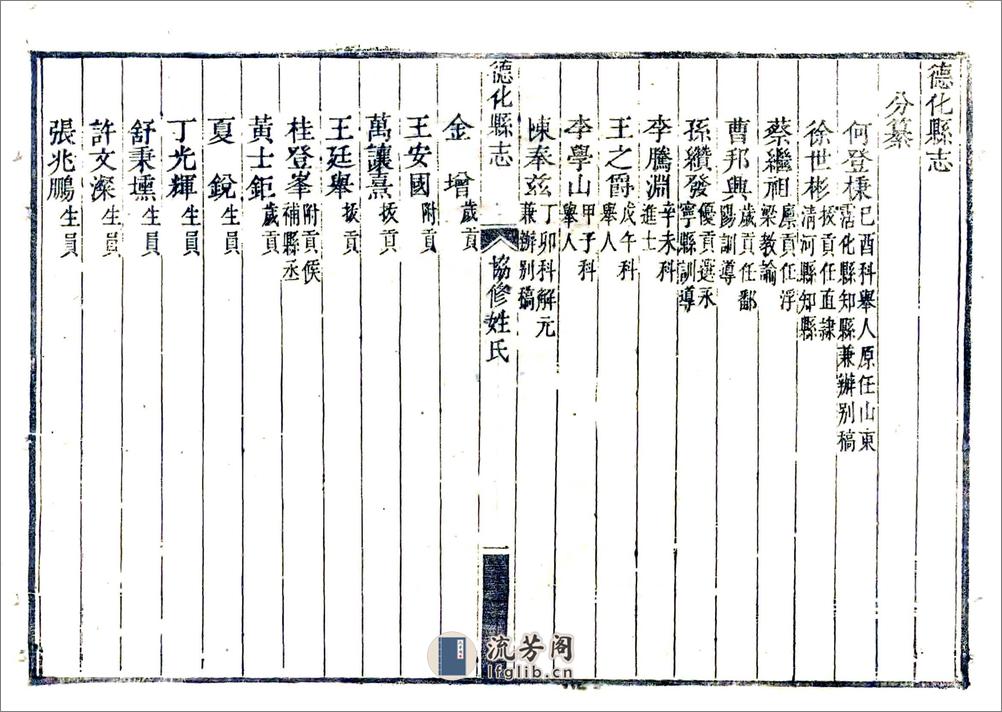 德化縣志
分纂
何登棅 己酉科舉人原任山東霑化縣知縣兼辦别稿
徐世彬 拔貢任直隸清河縣知縣
蔡繼祖 廩貢任浮梁教諭
曹邦興 歲貢任鄱陽訓導
孫纘發 優貢選永寧縣訓導
李騰淵 辛未科進士
王之爵 戊午科舉人
李學山 甲子科舉人
陳奉兹 丁卯科解元兼辦别稿
德化縣志 協修姓氏
金增 歲貢
王安國 附貢
萬讓熹 拔貢
王廷舉 拔貢
桂登峯 附貢候補縣丞
黃士鉅 歲貢
夏鋭 生員
丁光輝 生員
舒秉壎 生員
許文深 生員
張兆鵬 生員
流芳阁
lfglib.cn